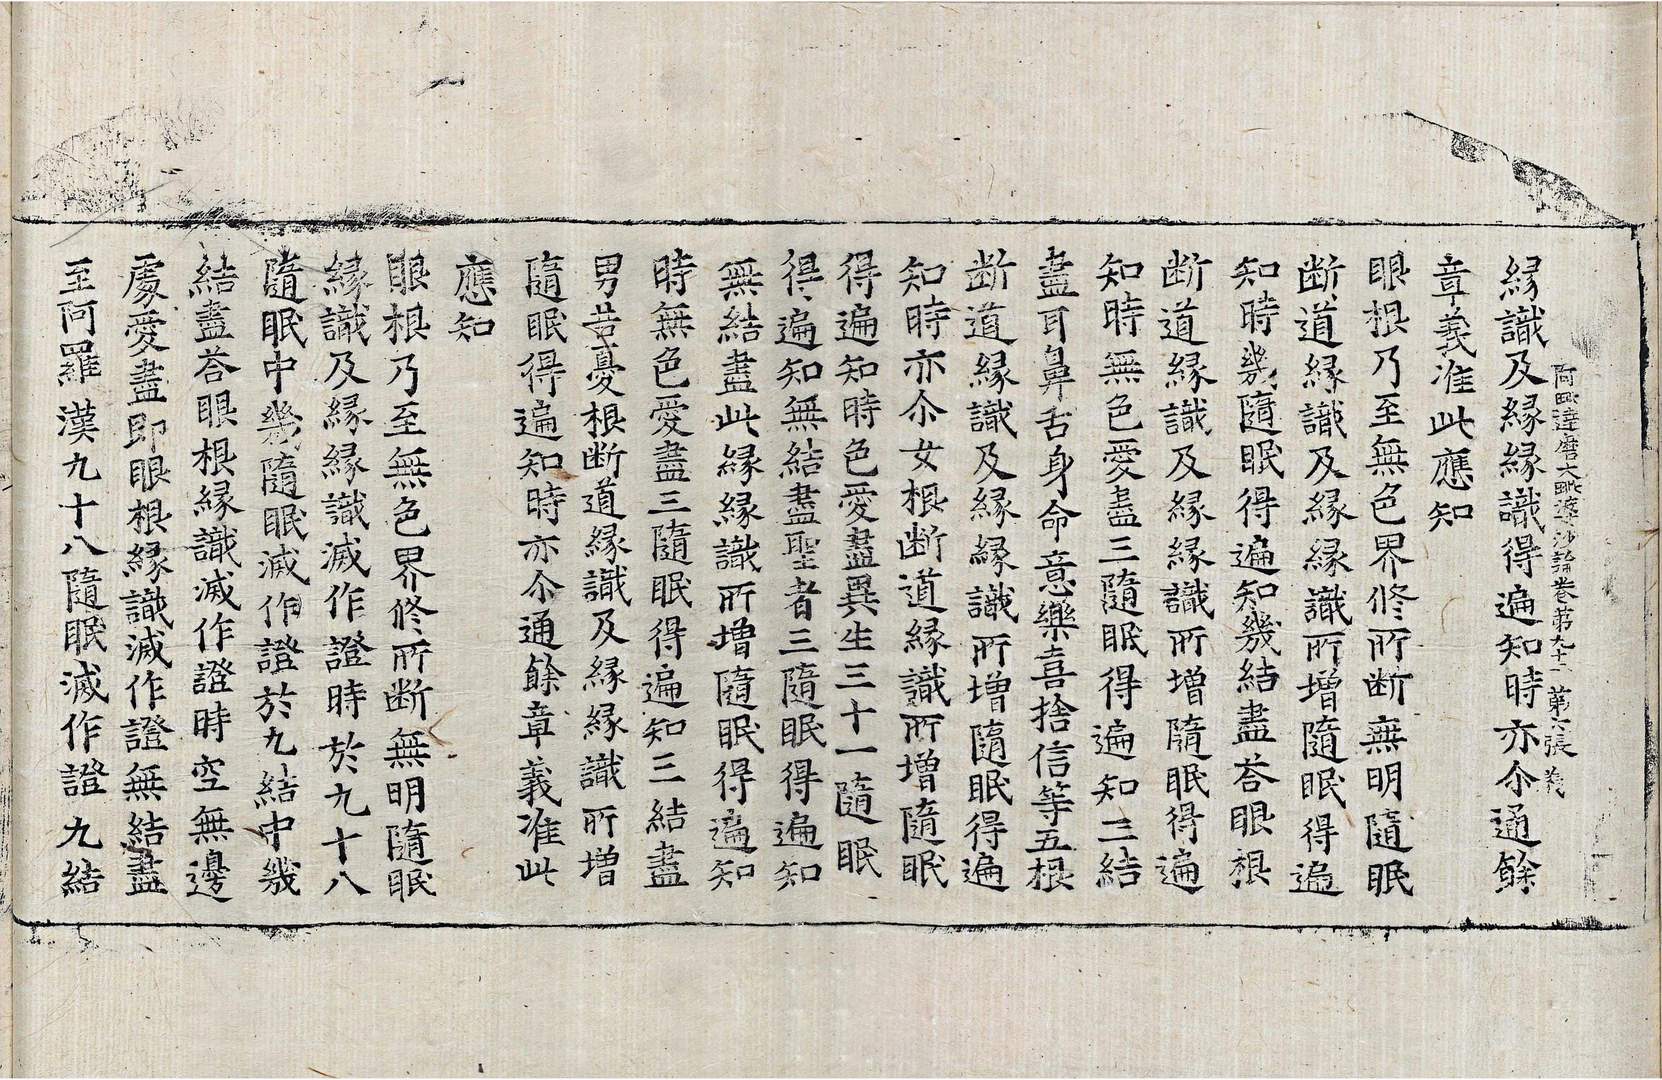 阿毗達磨大毗婆沙論卷第九十一 第六張 義
縁識及縁縁識得遍知時亦尒通餘
章義准此應知
眼根乃至無色界修所断無明隨眠
断道縁識及縁縁識所増隨眠得遍
知時幾隨眠得遍知幾結盡荅眼根
断道縁識及縁縁識所増隨眠得遍
知時無色愛盡三隨眠得遍知三結
盡耳鼻舌身命意樂喜捨信等五根
断道縁識及縁縁識所増隨眠得遍
知時亦尒女根断道縁識所増隨眠
得遍知時色愛盡異生三十一隨眠
得遍知無結盡聖者三隨眠得遍知
無結盡此縁縁識所増隨眠得遍知
時無色愛盡三隨眠得遍知三結盡
男苦憂根断道縁識及縁縁識所増
隨眠得遍知時亦尒通餘章義准此
應知
眼根乃至無色界修所断無明隨眠
縁識及縁縁識滅作證時於九十八
隨眠中幾隨眠滅作證於九結中幾
結盡荅眼根縁識滅作證時空無邊
處愛盡即眼根縁識滅作證無結盡
至阿羅漢九十八隨眠滅作證九結